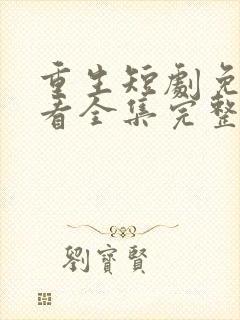 重生短劇免
看全集完整
劉寶賢